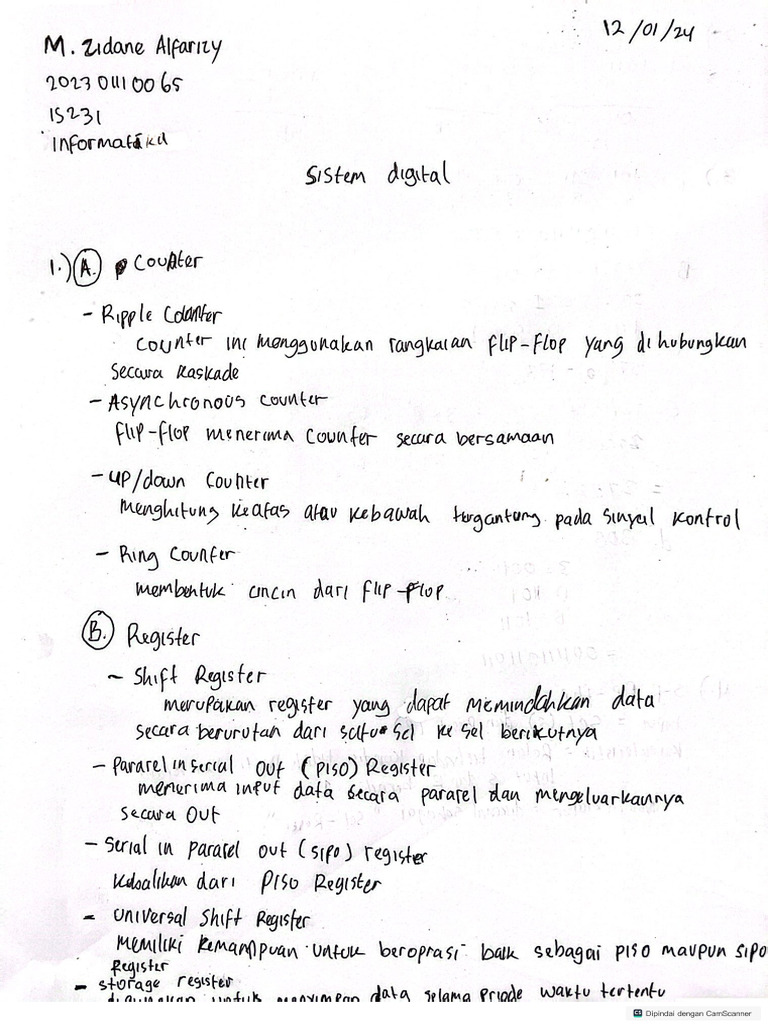 12/01/24
M. Zidane Alfarizy
202301110065
IS231
Informatika
Sistem digital
1.) A. Counter
- Ripple Counter
Counter ini menggunakan rangkaian flip-flop yang dihubungkan
secara kaskade
- Asynchronous counter
flip-flop menerima counter secara bersamaan
- up/down Counter
Menghitung keatas atau kebawah tergantung pada sinyal kontrol
- Ring Counter
membentuk cincin dari flip-flop
B. Register
- Shift Register
merupakan register yang dapat memindahkan data
secara berurutan dari satu sel ke sel berikutnya
- Pararel in serial out (PISO) Register
menerima input data secara pararel dan mengeluarkannya
secara out
- Serial in pararel out (sipo) register
kebalikan dari PISO Register
- Universal Shift Register
Memiliki kemampuan untuk beroprasi baik sebagai piso maupun sipo
Register
- storage register
digunakan untuk menyimpan data selama priode waktu tertentu
Dipindai dengan CamScanner